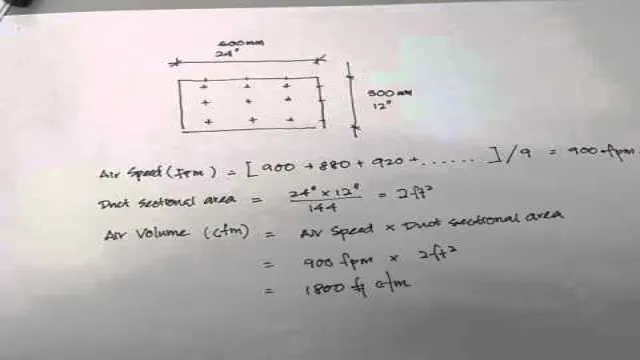 600mm
24"
300mm
12"
Air Speed (fpm) = [ 900 + 880 + 920 + ...... ] / 9 = 900 fpm.
Duct Sectional area = 24" x 12" / 144 = 2ft²
Air Volume (cfm) = Air Speed x Duct Sectional area
= 900 fpm x 2ft²
= 1800 cfm